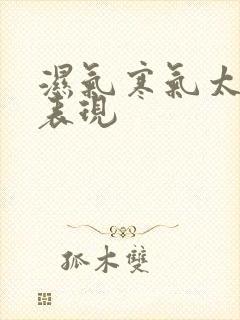 濕氣寒氣太
表現
孤木雙